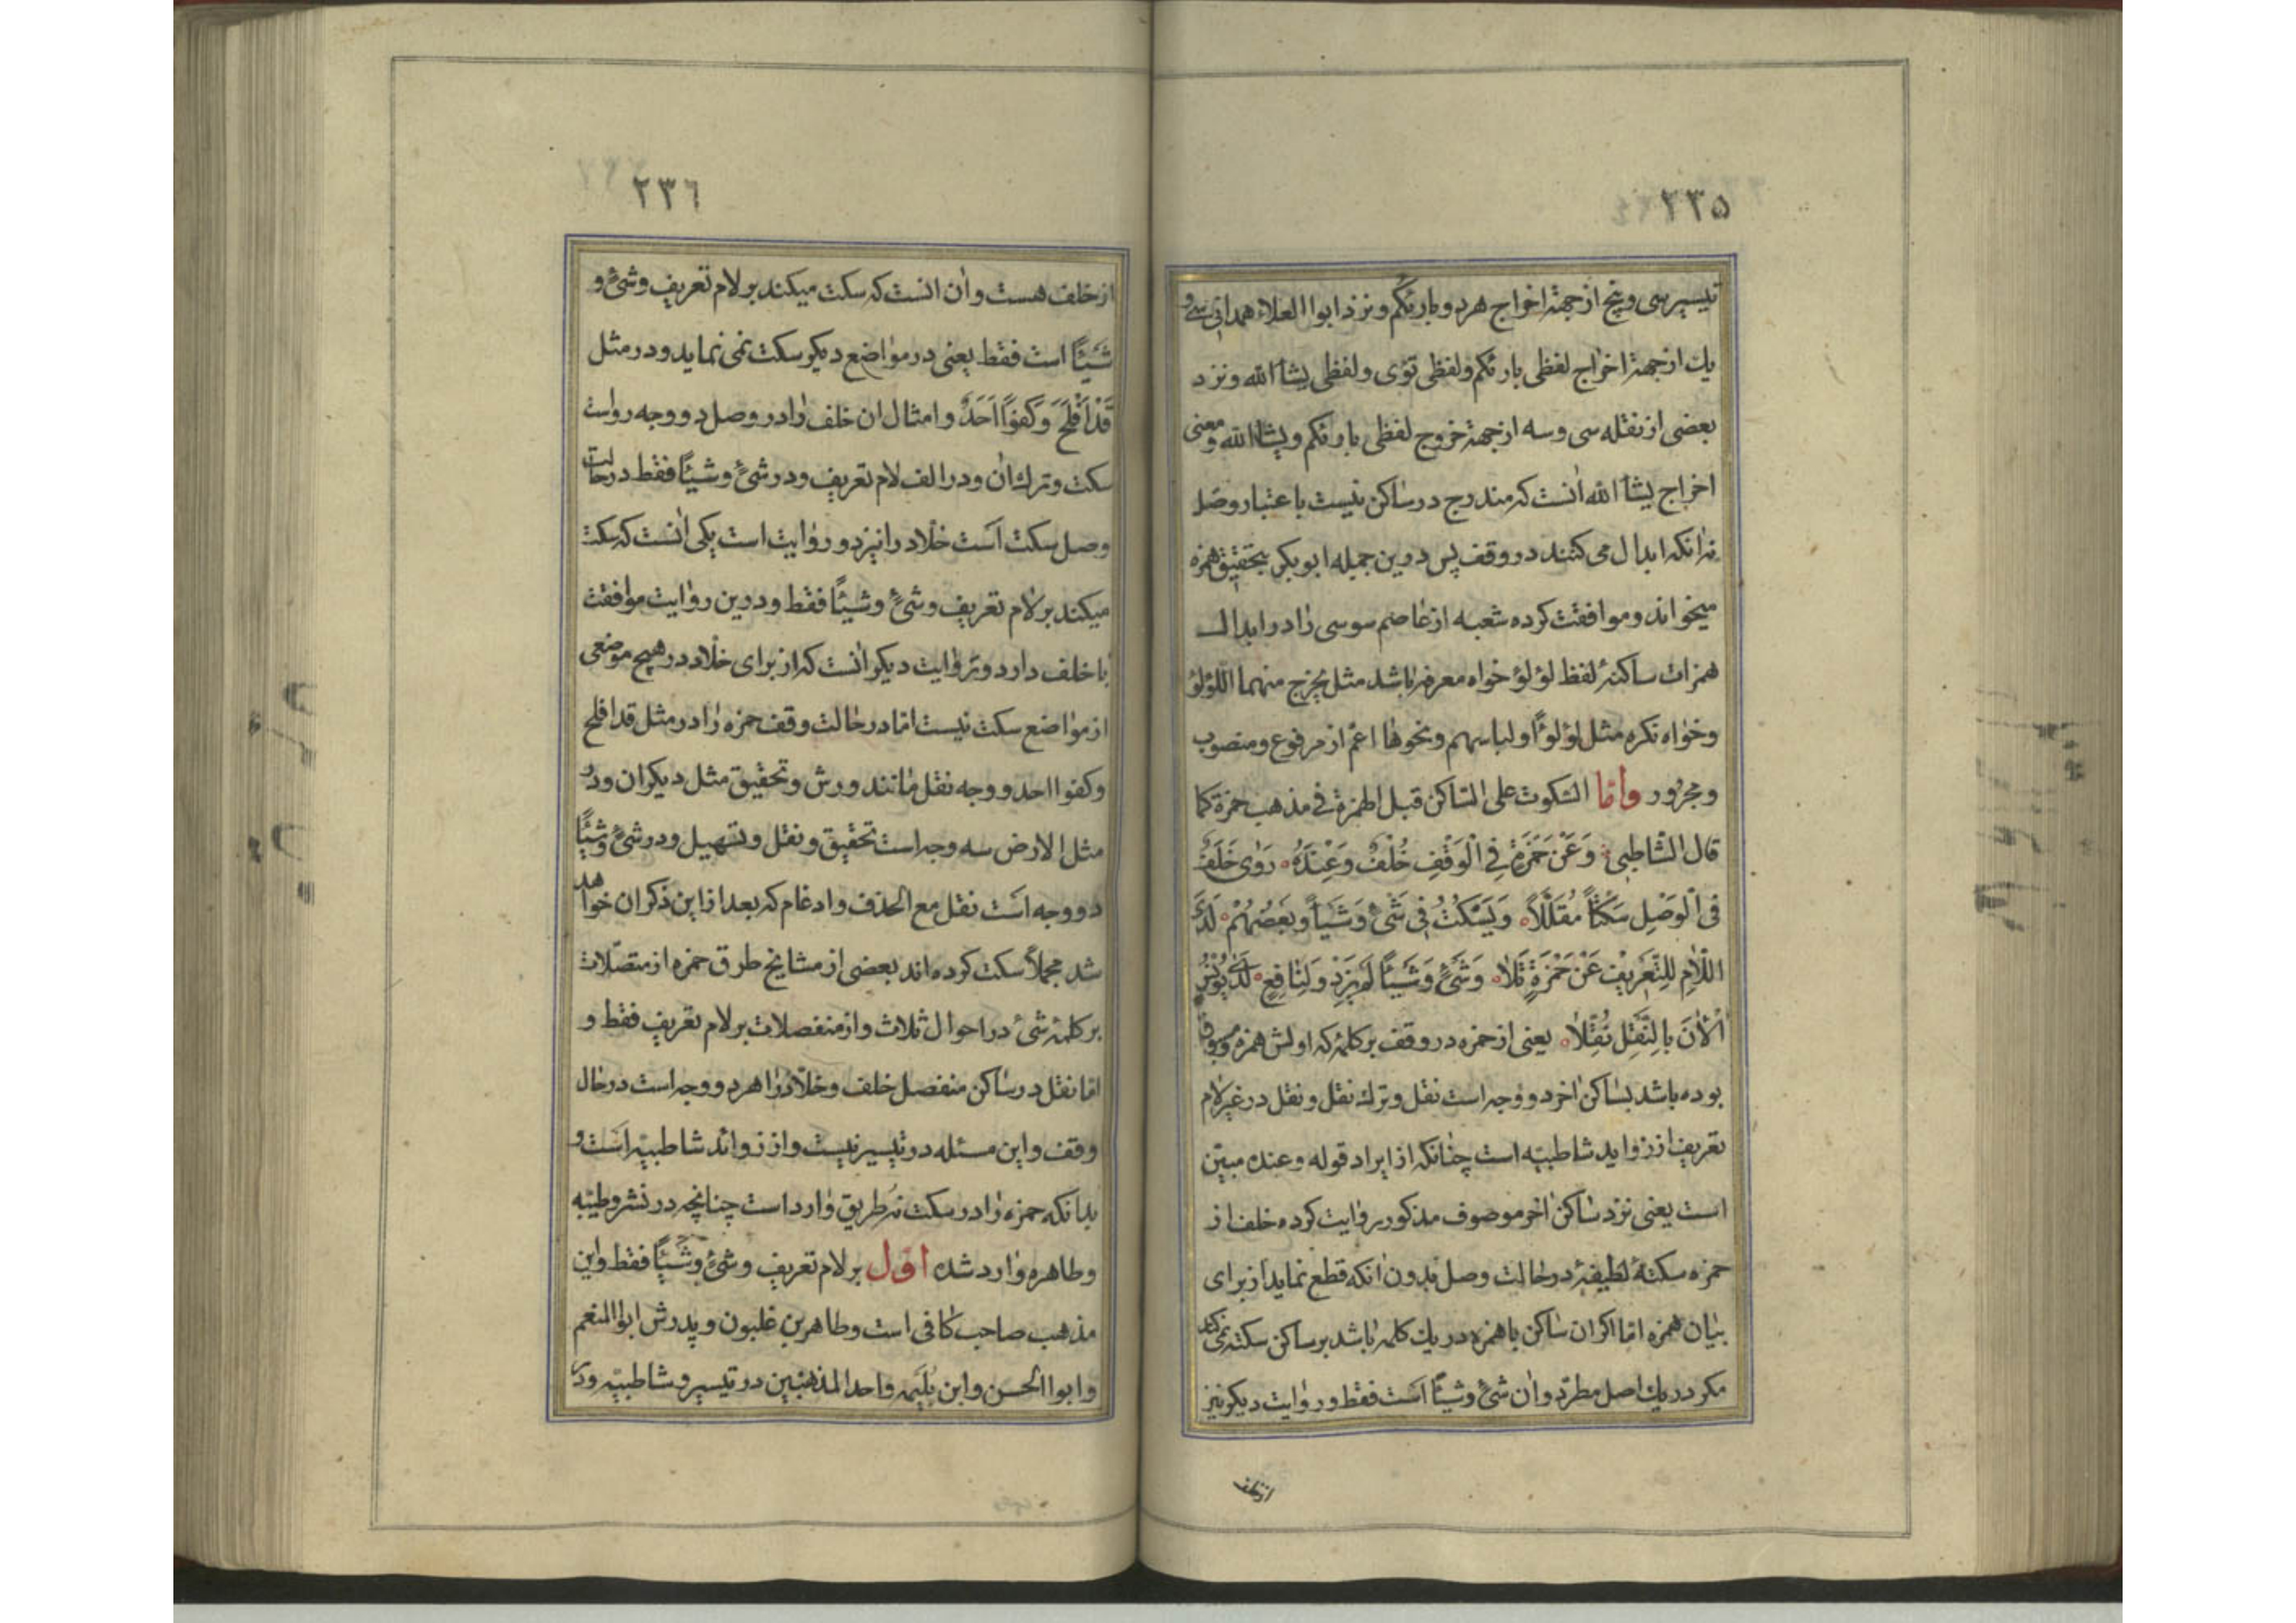 ۲۳۵
تیسیر سی و پنج از جهة اخراج هر دو بارئکم و نزد ابوا العلاء همدانی سی و
یك از جهة اخراج لفظی بارئکم و لفظی تؤی و لفظی یشأ الله و نزد
بعضی از نقله سی و سه از جهة خروج لفظی بارئکم و یشأ الله و معنی
اخراج یشأ الله آنست که مندرج در ساکن نیست باعتبار وصل
نه آنکه ابدال می کنند در وقف پس درین جمیله ابوبکر بتحقیق همزه
میخواند و موافقت کرده شعبه از عاصم سوسی را در ابدال
همزات ساکنهٔ لفظ لؤلؤ خواه معرفه باشد مثل یخرج منهما اللؤلؤ
و خواه نکره مثل لؤلؤًا و لباسهم و نحوها اعم از مرفوع و منصوب
و مجرور واما السکوت علی الساکن قبل الهمزة فی مذهب حمزة کما
قال الشاطبی وَعَنْ حَمْزَةٍ فِی الْوَقْفِ خُلْفٌ وَعِنْدَهُ رَوٰی خَلَفٌ
فی الْوَصْلِ سَکْتًا مُقَلَّلًا وَیَسْکُتُ فِی شَیْءٍ وَشَیْأً وَبَعْضُهُمْ لَدَی
اللّامِ لِلتَّعْرِیْفِ عَنْ حَمْزَةٍ تَلَا وَشَیْءٍ وَشَیْئًا لَمْ یَزِدْ وَلِنَافِعٍ لَدٰی یُوْنُسٍ
اْلآنَ بِالنَّقْلِ نُقِّلَا یعنی از حمزه در وقف بر کلمهٔ که اولش همزه و مسبوق
بوده باشد بساکن آخر دو وجه است نقل و ترك نقل و نقل در غیر لام
تعریف از زواید شاطبیه است چنانکه از ایراد قوله و عنده مبیّن
است یعنی نزد ساکن آخر موصوف مذکور روایت کرده خلف از
حمزه سکتهٔ لطیفهٔ در حالت وصل بدون آنکه قطع نماید از برای
بیان همزه اما اکر آن ساکن با همزه در یك کلمه باشد بر ساکن سکته نمی کند
مکر در یك اصل مطرد و آن شیء و شیئًا است فقط و روایت دیکر نیز
از خلف
۲۳٦
از خلف هست و آن انست که سکت میکند بر لام تعریف و شیء و
شَیْئًا است فقط یعنی در مواضع دیکر سکت نمی نماید و در مثل
قَدْ اَفْلَحَ وَکُفُوًا اَحَدٌ و امثال ان خلف را در وصل دو وجه رواست
سکت و ترك آن و در الف لام تعریف و در شیء و شیئًا فقط در حالت
وصل سکت است خلّاد را نیز دو روایت است یکی آنست که سکت
میکند بر لام تعریف و شیء و شیئًا فقط و درین روایت موافقت
با خلف دارد و روایت دیکر آنست که از برای خلّاد در هیچ موضعی
از مواضع سکت نیست اما در حالت وقف حمزه را در مثل قد افلح
و کفوا احد دو وجه نقل مانند ورش و تحقیق مثل دیکران و در
مثل الارض سه وجه است تحقیق و نقل و تسهیل و در شیء و شیئًا
دو وجه است نقل مع الحذف و ادغام که بعد از این ذکر ان خواهد
شد مجملًا سکت کرده اند بعضی از مشایخ طرق حمزه از متصلات
بر کلمهٔ شیء در احوال ثلاث و از منفصلات بر لام تعریف فقط و
اما نقل در ساکن منفصل خلف و خلّاد را هر دو وجه است در حال
وقف و این مسئله در تیسیر نیست و از زوائد شاطبیه است و
بدانکه حمزه را در سکت نه طریق وارد است چنانچه در نشر و طیبه
و طاهره وارد شده اول بر لام تعریف و شیء و شَیْئًا فقط و این
مذهب صاحب کافی است و طاهر بن غلبون و پدرش ابوا المنعم
و ابوا الحسن و ابن بُلَیْمه و احد المذهبین در تیسیر و شاطبیه و در